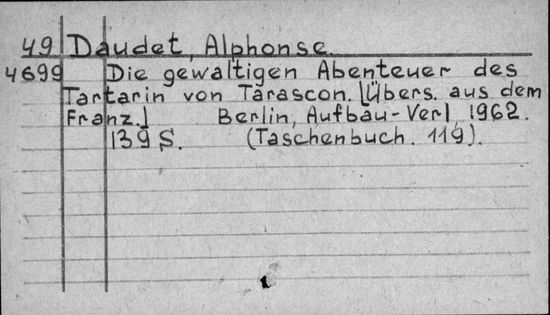 49 Daudet, Alphonse.
4699 Die gewaltigen Abenteuer des
Tartarin von Tarascon. [Übers. aus dem
Franz.] Berlin, Aufbau-Verl. 1962.
139 S. (Taschenbuch. 119).